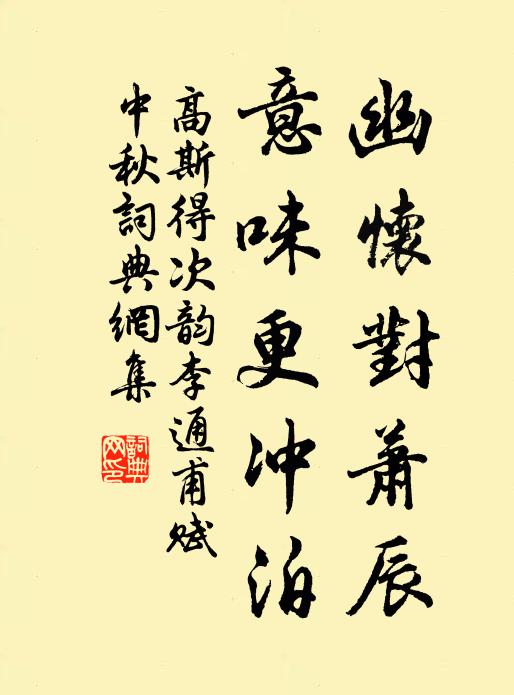 幽懷對蕭辰
意味更冲泊
高斯得次韵李通甫賦
中秋詞典網集
詞典网印